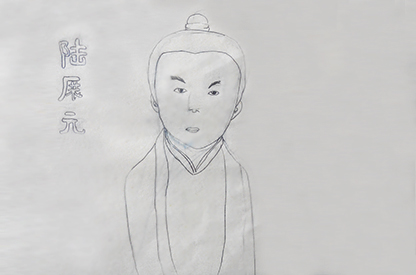 陆展元